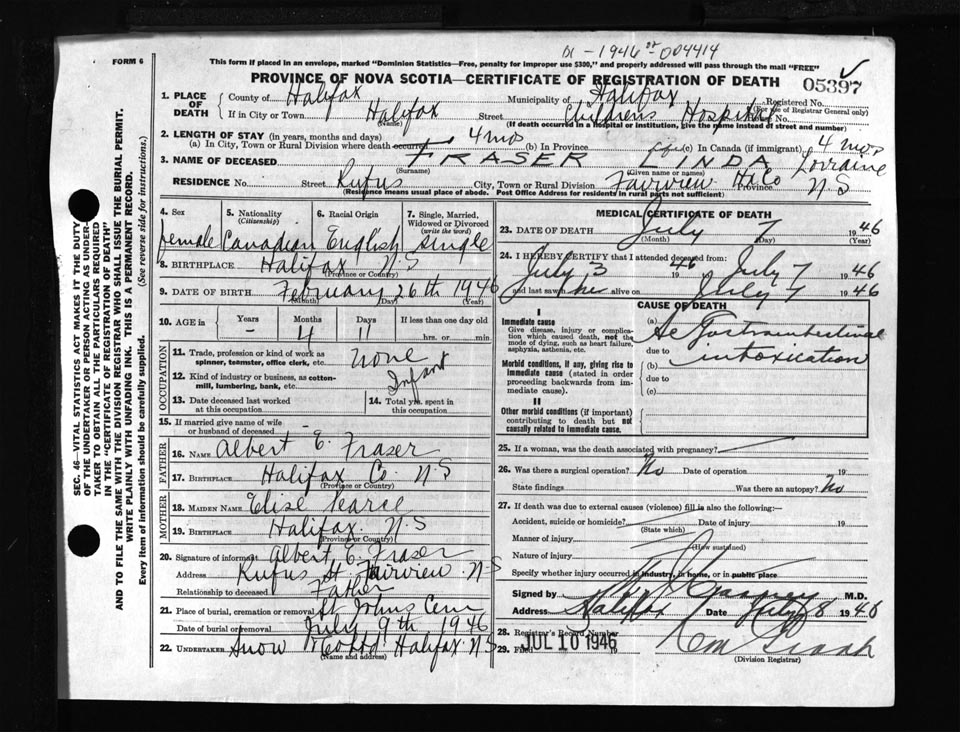 DI - 1946 - 004414
FORM 6
This form if placed in an envelope, marked "Dominion Statistics—Free, penalty for improper use $300," and properly addressed will pass through the mail "FREE"
PROVINCE OF NOVA SCOTIA—CERTIFICATE OF REGISTRATION OF DEATH
05397
1. PLACE OF DEATH
County of Halifax Municipality of Halifax Registered No.
(For use of Registrar General only)
If in City or Town Halifax Street Childrens Hospital No.
(Name) (If death occurred in a hospital or institution, give the name instead of street and number)
2. LENGTH OF STAY (in years, months and days)
(a) In City, Town or Rural Division where death occurred 4 mos (b) In Province life (c) In Canada (if immigrant) 4 mos
3. NAME OF DECEASED FRASER LINDA Lorraine
(Surname) (Given name or names)
RESIDENCE No. Street Rufus City, Town or Rural Division Fairview Ha Co Province N-S
(Residence means usual place of abode. Post Office Address for residents in rural parts not sufficient)
4. Sex female
5. Nationality (Citizenship) Canadian
6. Racial Origin English
7. Single, Married, Widowed or Divorced (write the word) single
8. BIRTHPLACE Halifax N-S
(Province or Country)
9. DATE OF BIRTH February 26th 1946
(Month) (Day) (Year)
10. AGE in Years - Months 4 Days 11 If less than one day old
hrs. or min.
OCCUPATION
11. Trade, profession or kind of work as spinner, teamster, office clerk, etc. none
12. Kind of industry or business, as cotton-mill, lumbering, bank, etc. Infant
13. Date deceased last worked at this occupation
14. Total yrs. spent in this occupation
15. If married give name of wife or husband of deceased -
FATHER
16. NAME Albert E. Fraser
17. BIRTHPLACE Halifax Co N-S
(Province or Country)
MOTHER
18. MAIDEN NAME Elise Pearce
19. BIRTHPLACE Halifax. N-S
(Province or Country)
20. Signature of informant Albert E. Fraser
Address Rufus St Fairview. N-S
Relationship to deceased Father
21. Place of burial, cremation or removal St Johns Cem
Date of burial or removal July 9th 1946
22. UNDERTAKER Snow Halifax. N-S
(Name and address)
MEDICAL CERTIFICATE OF DEATH
23. DATE OF DEATH July 7 1946
(Month) (Day) (Year)
24. I HEREBY CERTIFY that I attended deceased from:
July 3 1946 to July 7 1946
and last saw her alive on July 7 1946
CAUSE OF DEATH
I
Immediate cause
Give disease, injury or complication which caused death, not the mode of dying, such as heart failure, asphyxia, asthenia, etc.
(a) Ac Gastrointestinal
due to intoxication
Morbid conditions, if any, giving rise to immediate cause (stated in order proceeding backwards from immediate cause).
(b)
due to
(c)
II
Other morbid conditions (if important) contributing to death but not causally related to immediate cause.
25. If a woman, was the death associated with pregnancy?
26. Was there a surgical operation? No Date of operation 19
State findings Was there an autopsy? No
27. If death was due to external causes (violence) fill in also the following:
Accident, suicide or homicide? Date of injury 19
(State which)
Manner of injury
(How sustained)
Nature of injury
Specify whether injury occurred in industry, in home, or in public place
Signed by M.D.
Address Halifax Date July 8 1946
28. Registrar's Record Number
29. Filed JUL 10 1946
(Division Registrar)
SEC. 46—VITAL STATISTICS ACT MAKES IT THE DUTY OF THE UNDERTAKER OR PERSON ACTING AS UNDERTAKER TO OBTAIN ALL THE PARTICULARS REQUIRED IN THE "CERTIFICATE OF REGISTRATION OF DEATH" AND TO FILE THE SAME WITH THE DIVISION REGISTRAR WHO SHALL ISSUE THE BURIAL PERMIT.
WRITE PLAINLY WITH UNFADING INK. THIS IS A PERMANENT RECORD.
Every item of information should be carefully supplied. (See reverse side for instructions.)